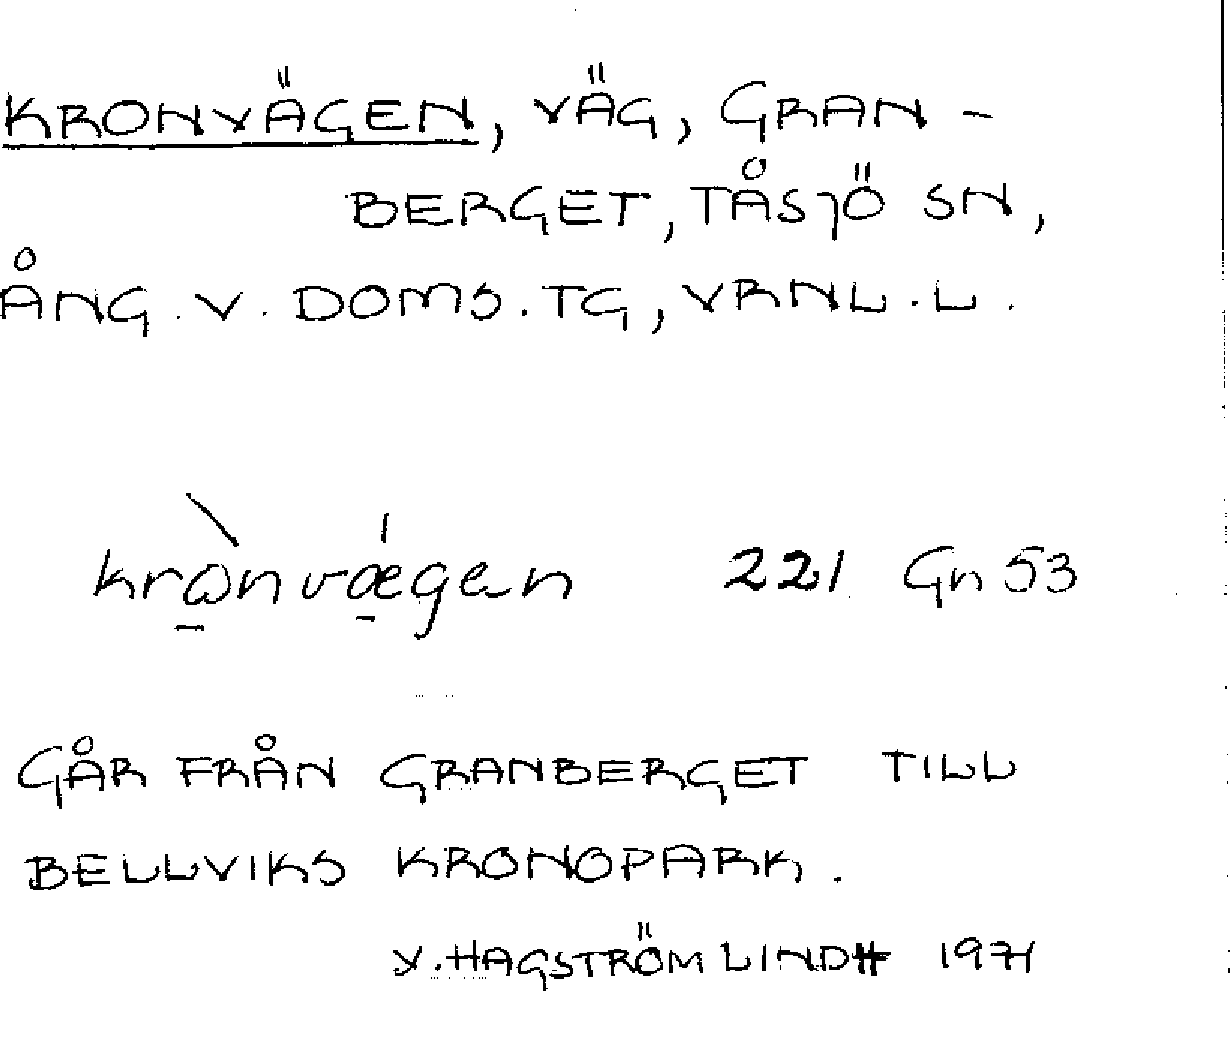 KRONVÄGEN, VÄG, GRAN-
BERGET, TÅSJÖ SN,
ÅNG. V. DOMS. TG, VRNL. L.
krωnvægen 221 Gn 53
GÅR FRÅN GRANBERGET TILL
BELLVIKS KRONOPARK.
Y. HAGSTRÖM LINDH 1971